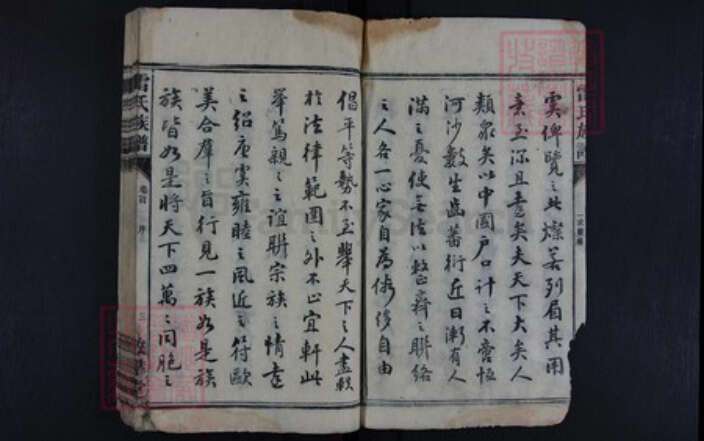 虞俾覽之者燦若列眉其用
意至深且遠矣夫天下大矣人
類眾矣以中國戶口計之不啻恒
河沙數生齒蕃衍近日漸有人
滿之憂使無法以整齊之聯絡
之人各一心家自為俗侈自由
倡平等勢不至舉天下之人盡軼
於法律範圍之外不止宜軒此
舉篤親親之誼聯宗族之情遠
之紹唐虞雍睦之風近之符歐
美合羣之旨行見一族如是族
族皆如是將天下四萬萬同胞之
雷氏族譜
卷首
序
三